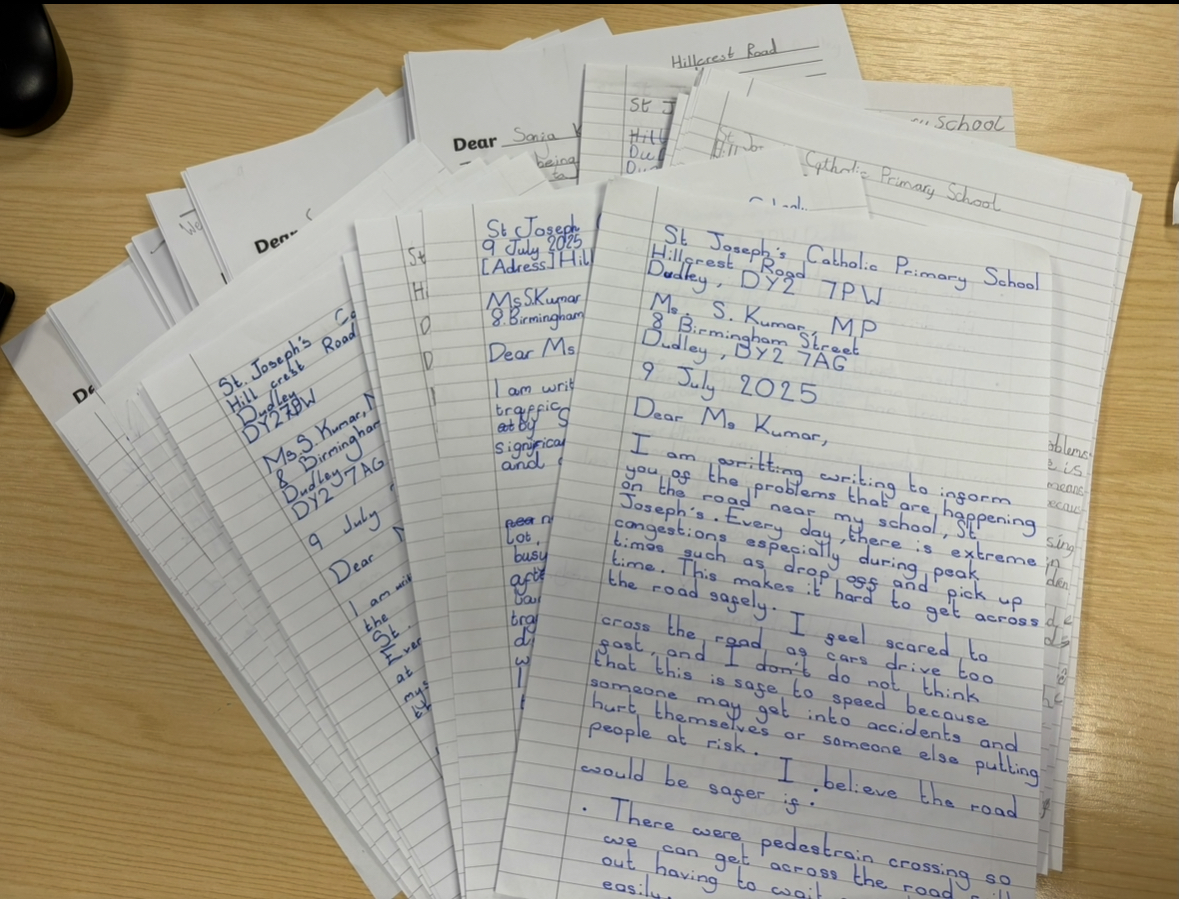 Hillcrest Road
Dear Sonia K
being
to
St J
Hill
Du
D
School
St Jo Catholic Primary School
Hill
We
Dear
De
St. Joseph's Ca
Hill crest Road
Dudley
DY2 7PW
Ms. S. Kumar, M
8 Birmingham
Dudley
DY2 7AG
9 July
Dear M
I am wri
the
St.
Ever
at
mys
St
H
D
D
St Joseph
9 July 2025
[Adress] Hill
Ms S. Kumar
8. Birmingham
Dear Ms
I am writ
traffic
at by S
significa
and
near n
lot.
busy
afte
tra
St Joseph's Catholic Primary School
Hillcrest Road
Dudley, DY2 7PW
Ms. S. Kumar, MP
8 Birmingham Street
Dudley, DY2 7AG
9 July 2025
Dear Ms Kumar,
I am writting writing to inform
you of the problems that are happening
on the road near my school, St
Joseph's. Every day, there is extreme
congestions especially during peak
times such as drop off and pick up
time. This makes it hard to get across
the road safely. I feel scared to
cross the road as cars drive too
fast, and I don't do not think
that this is safe to speed because
someone may get into accidents and
hurt themselves or someone else putting
people at risk. I believe the road
would be safer if:
• There were pedestrain crossing so
we can get across the road
out having to wait
easily.
oblems
is
means
ecaus
sing
in
den